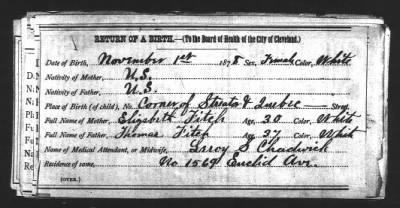 RETURN OF A BIRTH.—(To the Board of Health of the City of Cleveland.)
Date of Birth, November 1st 1878 Sex, Female Color, White
Nativity of Mother, U.S.
Nativity of Father, U.S.
Place of Birth (of child), No. Corner of Streata & Quebec Street
Full Name of Mother, Elizabeth Fitch Age, 30 Color, Whit
Full Name of Father, Thomas Fitch Age, 37 Color, Whit
Name of Medical Attendant, or Midwife, Leroy S Chadwick
Residence of same, No 1569 Euclid Ave.
(OVER.)